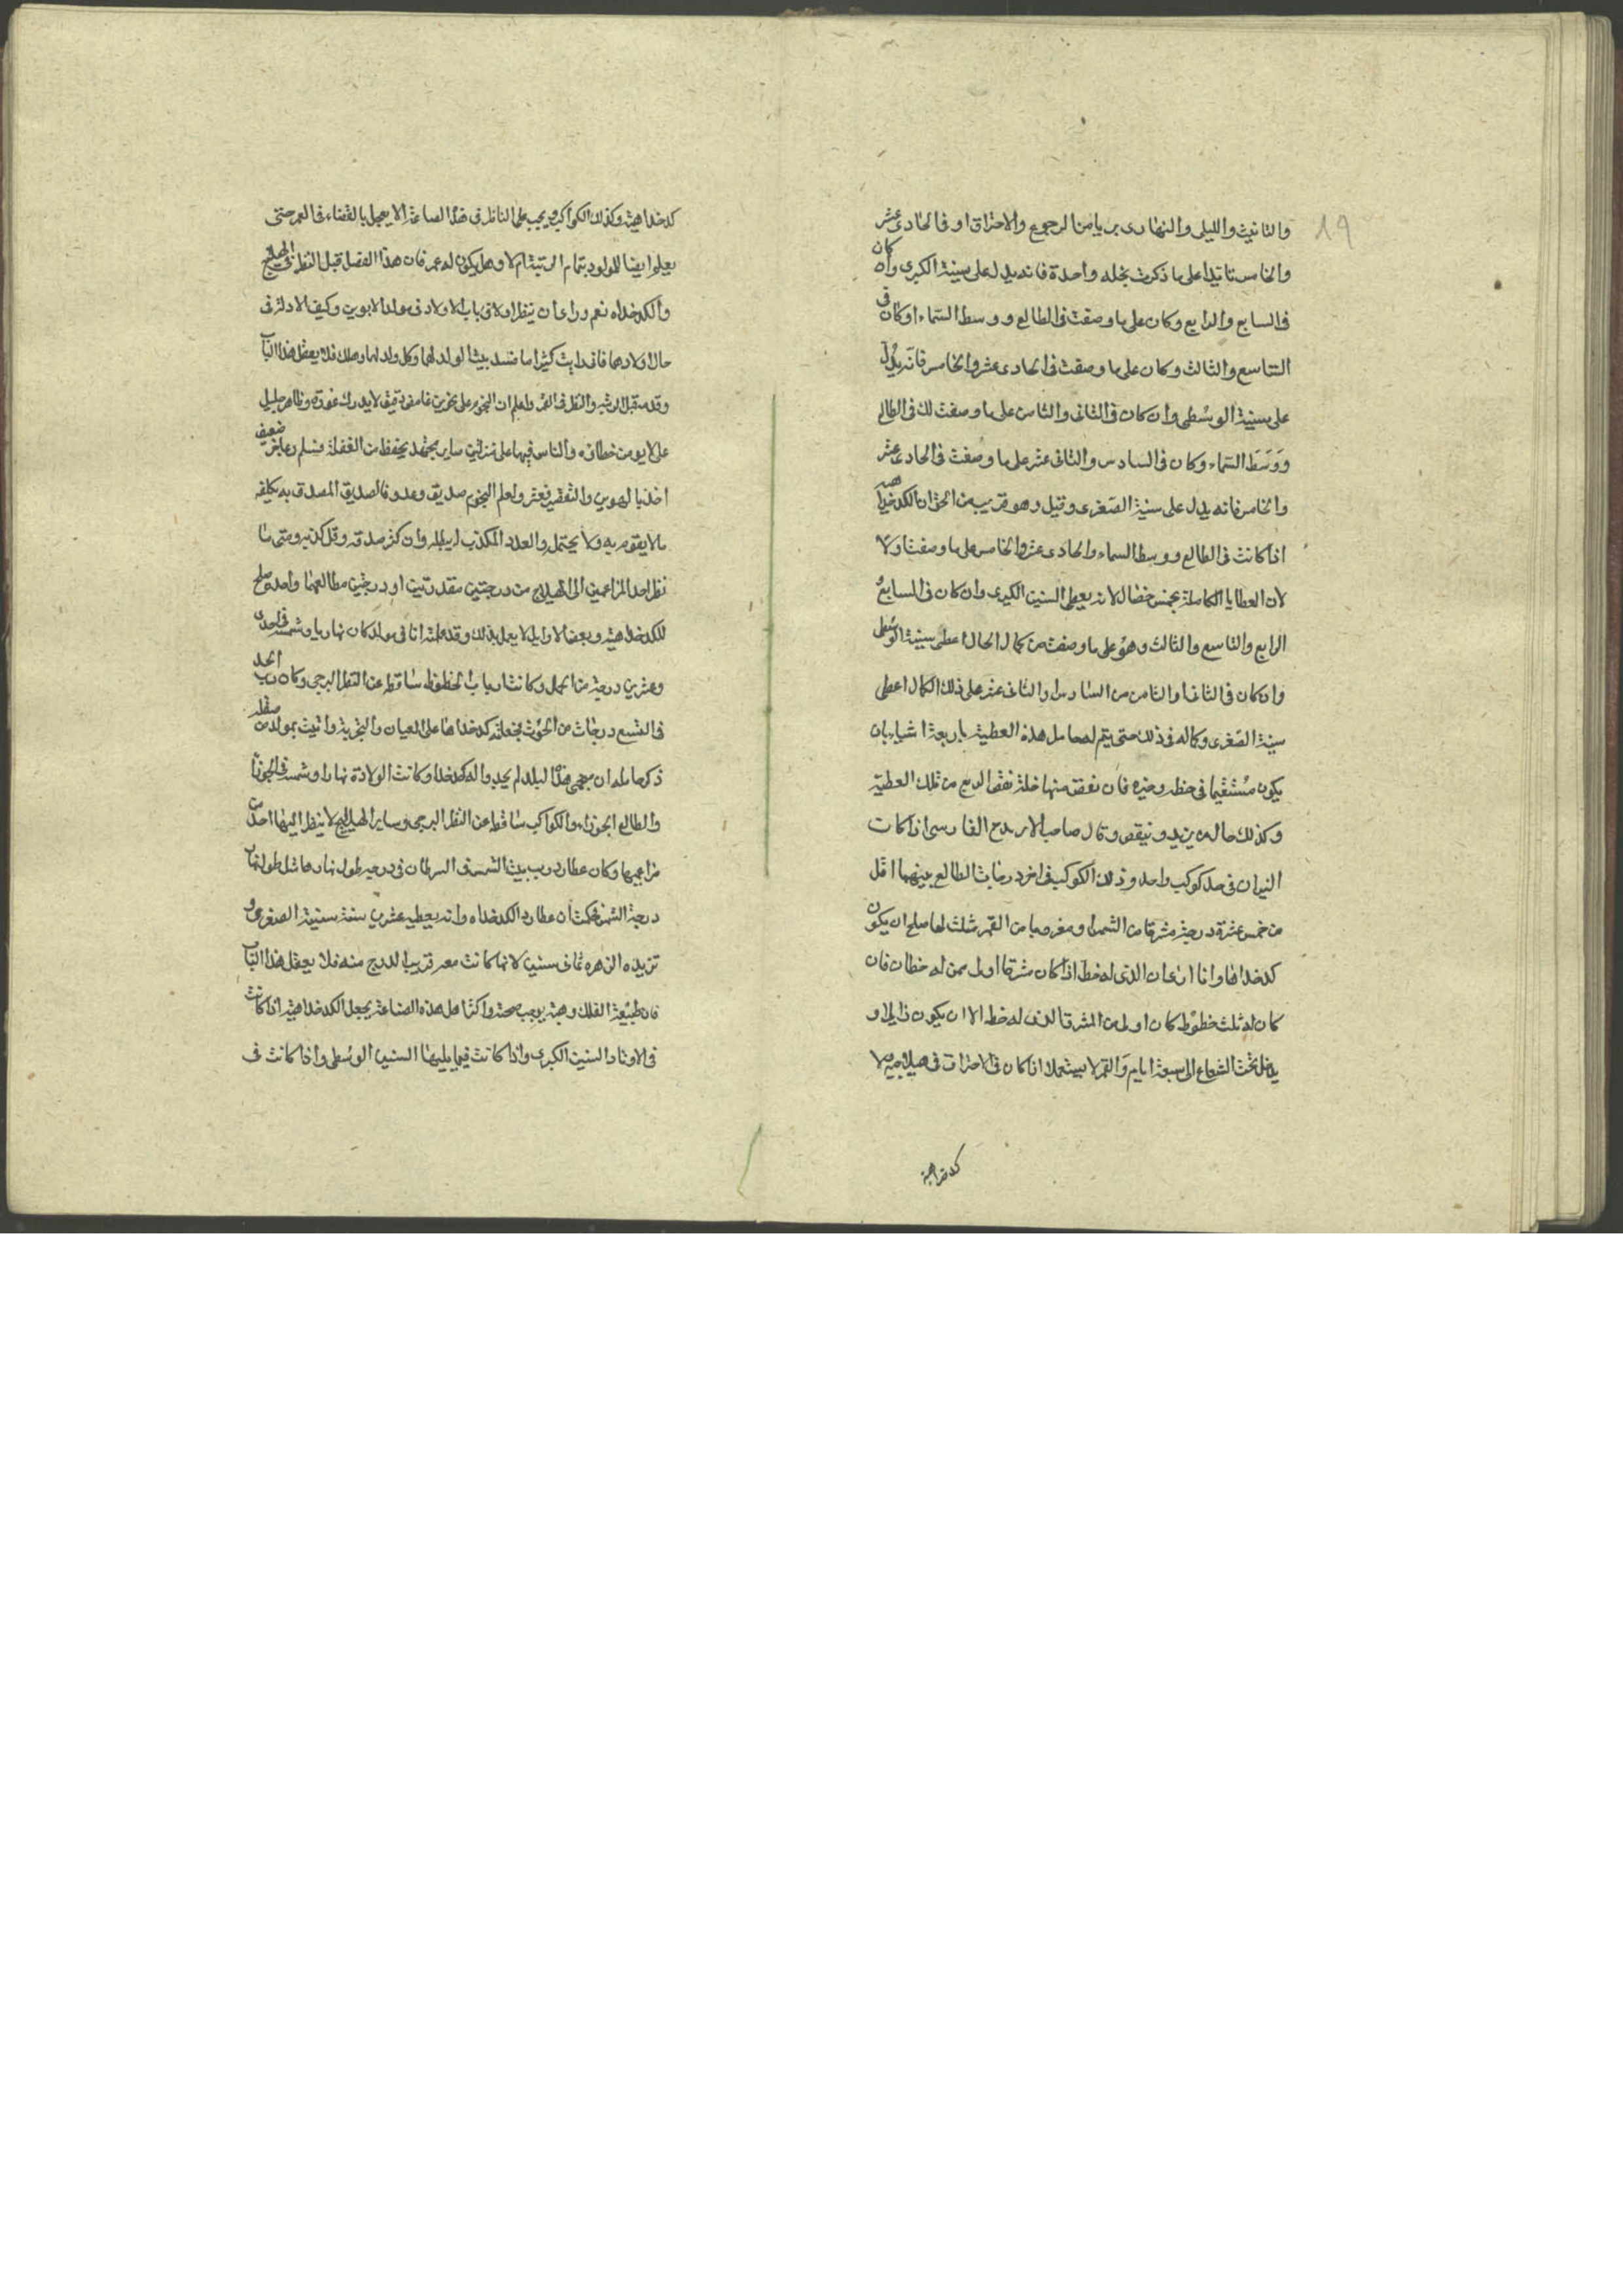 19
والتانيث والليلى والنهارى بريا من الرجوع والاحتراق او فى الحادى عشر
والخامس ثابتا على ما ذكرت بخله واحدة فانه يدل على سنية الكبرى وان كان
فى السابع والرابع وكان على ما وصفت فى الطالع ووسط السماء او كان فى
التاسع والثالث وكان على ما وصفت فى الحادى عشر والخامس فانه يدل
على سنية الوسطى وان كان فى الثانى والثامن على ما وصفت لك فى الطالع
ووسط السماء وكان فى السادس والثانى عشر على ما وصفت فى الحادى عشر
والخامس فانه يدل على سنية الصغرى وقيل وهو قريب من الحق ان الكدخداه
اذا كانت فى الطالع ووسط السماء والحادى عشر والخامس على ما وصفت اولا
لان العطايا الكاملة بخمس خصال لانه يعطى السنين الكبرى وان كان فى السابع و
الرابع والتاسع والثالث وهو على ما وصفت من كمال الحال اعطى سنية الوسطى
وان كان فى الثانى والثامن من السادس والثانى عشر على ذلك الكمال اعطى
سنية الصغرى وكماله فى ذلك حتى يتم له حامل هذه العطية باربعة اشيا بان
يكون مستقيما فى حظه وحيزه فان نقص منها خلة نقص الربع من تلك العطية
وكذلك حاله يزيد وينقص وقال صاحب الفارسى اذا كانت
النيران فى حد كوكب واحد وذلك الكوكب فى اخر درجات الطالع بينهما اقل
من خمس عشرة درجة مشرقا من الشمس او مغربيا من القمر شلث لها صلح ان يكون
كدخداها وانا ارى ان الذى له حظ اذا كان مشرقا اولى ممن له حظان فان
كان له ثلث حظوظ كان اولى من المشرق الذى له حظ الا ان يكون زايلا او
يدخل تحت الشعاع الى سبعة ايام والقمر لا يستعمل اذا كان فى الاحتراق فى هيلاجية ولا
كدخداهية
كدخداهية وكذلك الكواكب ويجب على الناظر فى هذه الصناعة الا يعجل بالقضاء فى العمر حتى
يعلم ايضا للمولود بتمام التربية ام لا وهل يكون له عمر فان هذا الفصل قبل النظر فى الهيلاج
والكدخداه نعم وراى ان ينظر اولا فى باب الاولاد فى مولد الابوين وكيف الادلة فى
حال اولادهما فانى رايت كثيرا ما تفسد بيت الولد لهما وكل ولد لهما وهلك فلا يغفل هذا الباب
وقدمه قبل التربية والنظر فى العمر واعلم ان النجوم على نحوين غامض دقيق لا يدرك غوره وظاهر جليل
على لا يومن خطاؤه والناس فيها على منزلتين ساير مجتهد يتحفظ من الغفلة فيسلم وعاجز ضعيف
اخذ بالهوين والتقصير فعثر ولعلم النجوم صديق وعدو فالصديق المصدق به يكلفه
ما لا يقوم به ولا يحتمل والعدو المكذب له يبطله وان كثر صدقه وقل كذبه ومتى ما
نظر احد المزاعمين الى الهيلاج من درجتين مقتدرتين او درجتين مطالعهما واحدة صلح
للكدخداهية وبعض الاوايل لا يعمل بذلك وقد علمته انا فى مولد كان نهاريا وشمسه فى احدى
وعشرين درجة من الحمل وكانت ارباب الحظوظ ساقطة عن النظر البرجى وكان رب الحد
فى التسع درجات من الحوت فجعلته كدخداها على العيان والتجربة واتيت بمولد من صقلى
ذكر حامله ان منجمى هذا البلد لم يجدوا له كدخدا وكانت الولادة نهارا وشمسه فى الجوزا
والطالع الجوزاء والكواكب ساقطة عن النظر البرجى وساير الهيلاج لا ينظر اليها احد من
مزاعميها وكان عطارد رب بيت الشمس فى السرطان فى درجة طول نهارها مثل طول نهار
درجة الشمس فحكمت ان عطارد الكدخداه وانه يعطيه عشرين سنة سنية الصغرى و
تزيده الزهره ثمانى سنين لانها كانت معه قريبا الدرج منه فلا يغفل هذا الباب
فان طبيعة الفلك وهيئته يوجب صحته واكثر اهل هذه الصناعة يجعل الكدخداهية اذا كانت
فى الاوتاد السنين الكبرى واذا كانت فيما يليها السنين الوسطى واذا كانت فى